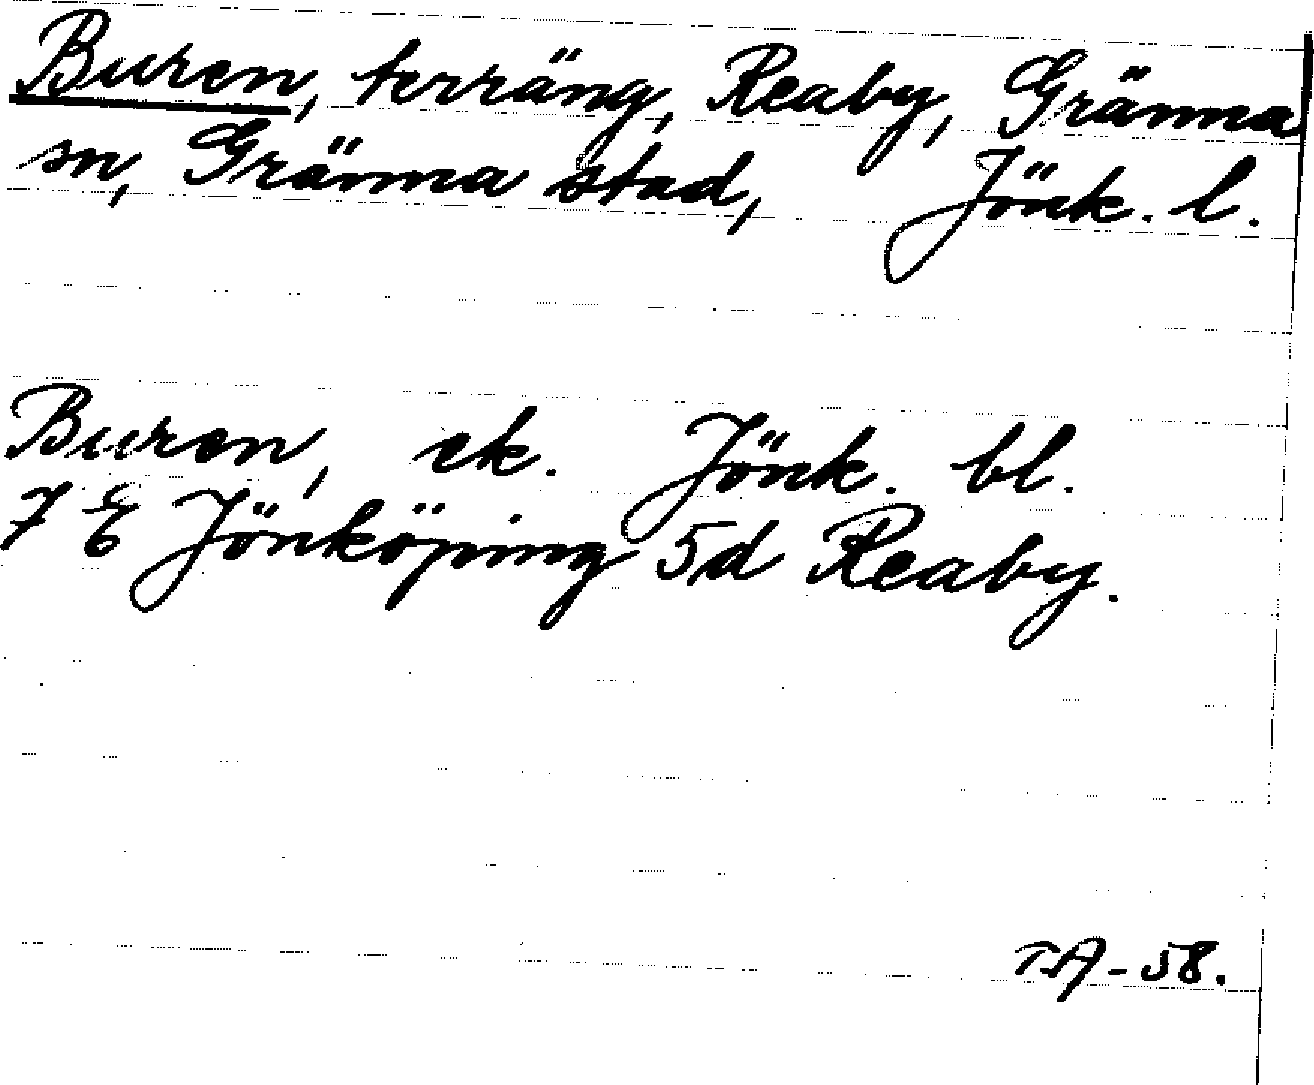 Buren, terräng, Reaby, Gränna
sn, Gränna stad, Jönk. l.
Buren, ek. Jönk. bl.
7 E Jönköping 5d Reaby.
TA-58.